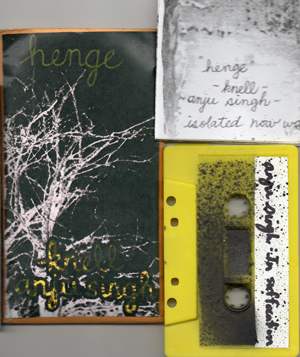 henge
knell
anju singh
"henge"
- knell -
- anju singh -
isolated now wa
anju singh: In suffocation